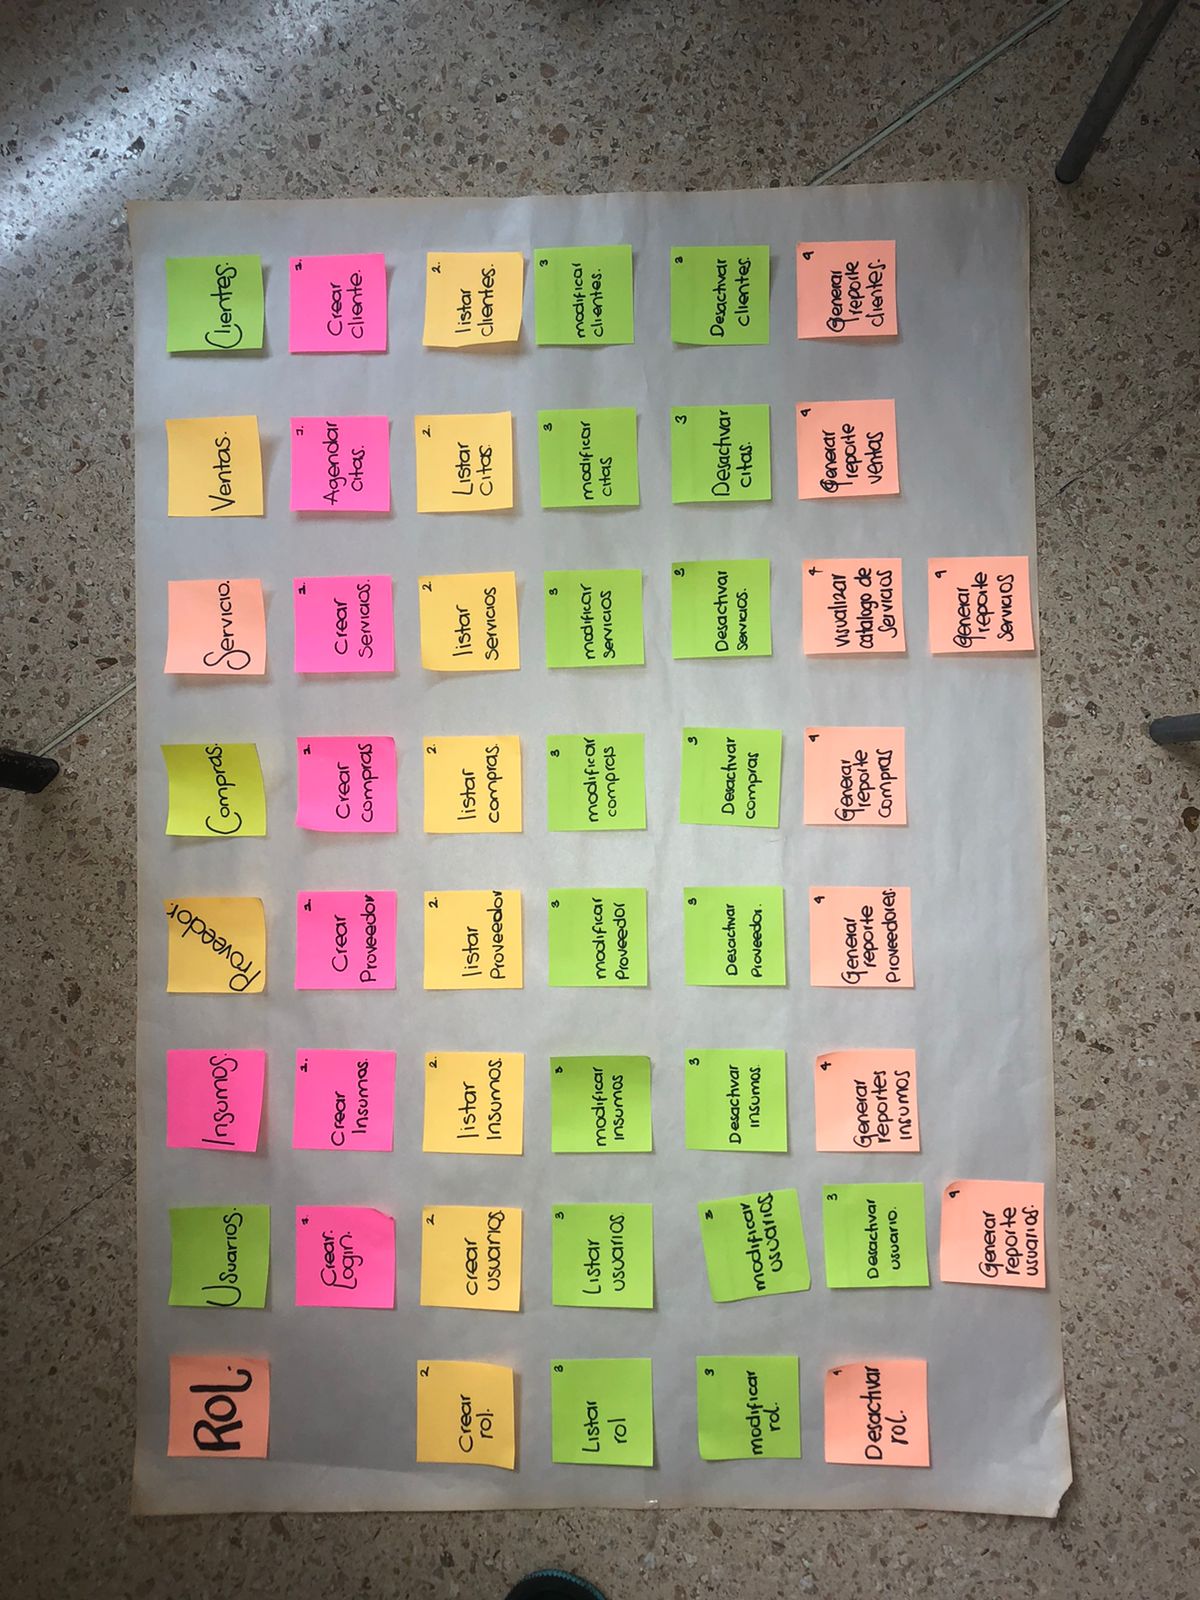 Rol.
Usuarios.
Insumos.
Proveedor.
Compras.
Servicio.
Ventas.
Clientes.
1.
Crear.
Login.
1.
Crear
Insumos.
1.
Crear
Proveedor
1.
Crear
compras
1.
Crear
Servicios.
1.
Agendar
citas.
1.
Crear
cliente.
2
Crear
rol.
2
crear
usuarios
2.
listar
Insumos.
2.
listar
Proveedor
2.
listar
compras.
2.
listar
servicios
2.
Listar
citas.
2.
listar
clientes.
3
Listar
rol
3
Listar
usuarios
3
modificar
insumos
3
modificar
Proveedor
3
modificar
compras
3
modificar
servicios
3
modificar
citas
3
modificar
clientes.
3
modificar
rol.
3
modificar
usuarios
3
Desactivar
insumos.
3
Desactivar
Proveedor.
3
Desactivar
compras
3
Desactivar
servicios.
3
Desactivar
citas.
3
Desactivar
clientes.
4
Desactivar
rol.
3
Desactivar
usuario.
4
Generar
reportes
insumos
4
Generar
reporte
Proveedores.
4
Generar
reporte
compras
4
visualizar
catalogo de
Servicios
4
Generar
reporte
ventas
4
Generar
reporte
clientes.
4
Generar
reporte
usuarios.
4
Generar
reporte
Servicios